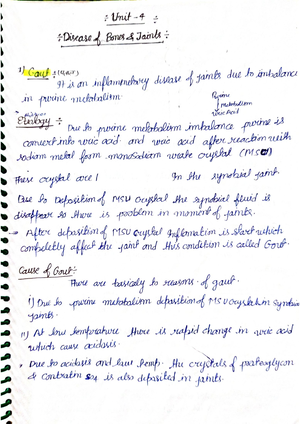 ÷ Unit - 4
÷ Disease of Bones & Joints ÷
1) Gout ÷
It is an inflammatory disease of joints due to imbalance
in purine metabolism.
Purine
↓ metabolism
Uric Acid
Etiology ÷ Due to purine metabolism imbalance purine is
convert into uric acid and uric acid after reaction with
sodium metal form monosodium urate crystal (MSU)
These crystal are In the synobial joint.
Due to Deposition of MSU crystal the synobial fluid is
disappear so there is problem in moment of joints.
After deposition of MSU crystal Inflamation is start which
completely affect the joint and this condition is called Gout.
Cause of Gout ÷
There are basically to reasons of gout.
i) Due to purine metabolism deposition of MSU crystals in Synobial
joints.
ii) At low temperature there is rapid change in uric acid
which cause acidosis.
Due to acidosis and low temp. the crystals of proteoglycon
& is also deposited in joints.